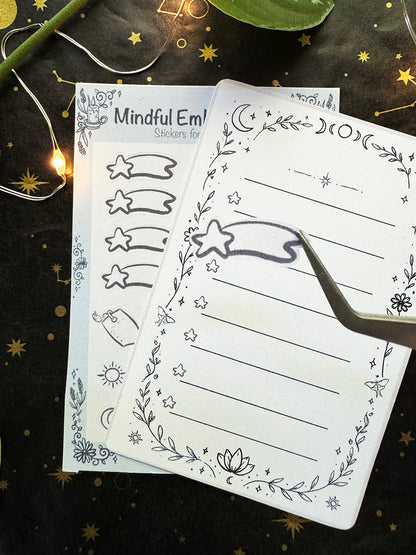 Mindful Em
Stickers for